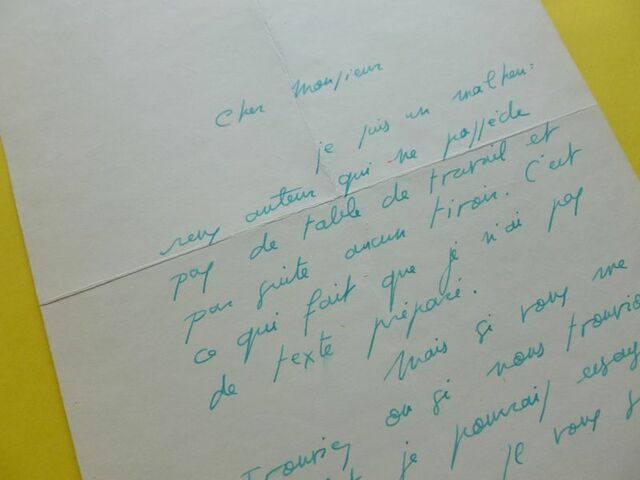 Cher Monsieur
je suis un malheu=
reux auteur qui ne possède
pas de table de travail et
par suite aucun tiroir. C'est
ce qui fait que je n'ai pas
de texte préparé.
Mais si vous me
trouviez ou si nous trouvio
je pourrais essay
Il vous